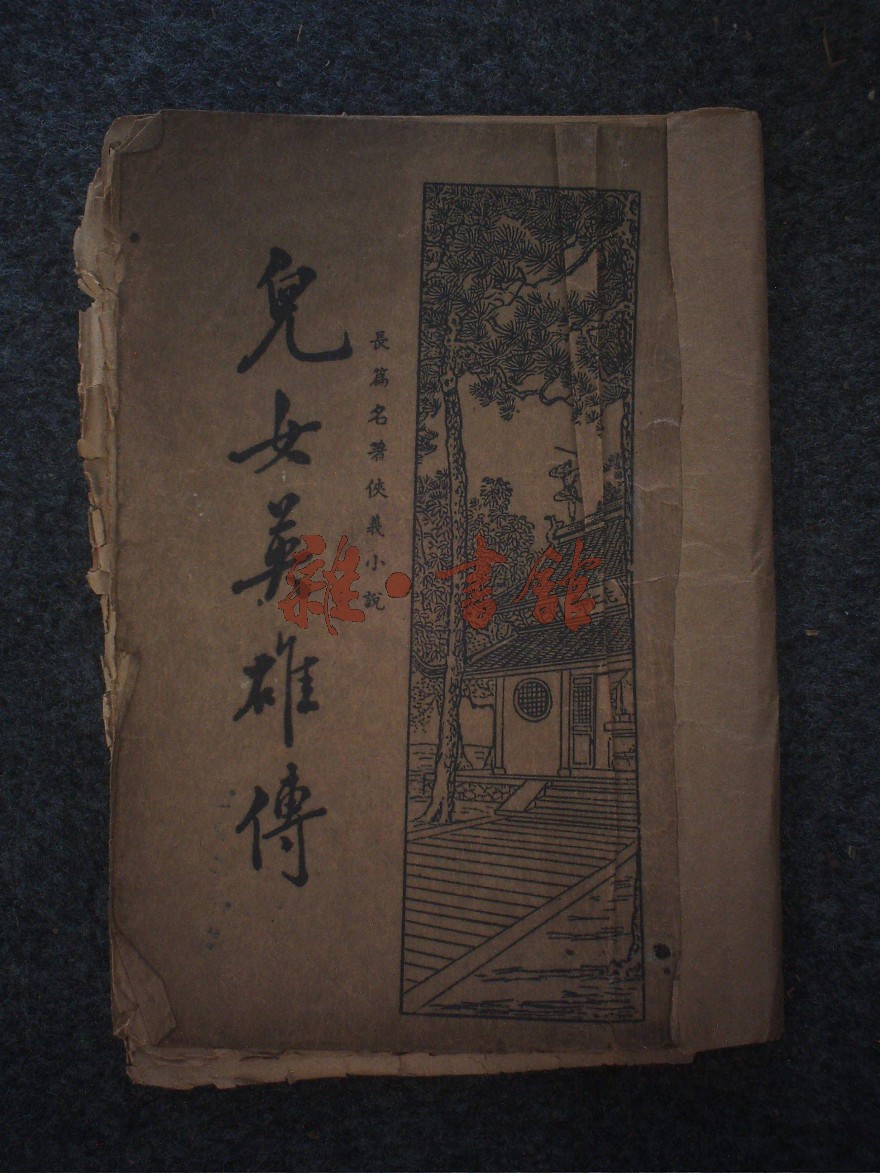 長篇名著俠義小説
兒女英雄傳
雜·書館